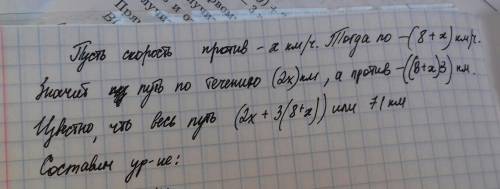 Пусть скорость против - x км/ч. Тогда по - (8+x) км/ч.
Значит путь по течению (2x) км, а против - ((8+x)3) км.
Известно, что весь путь (2x + 3(8+x)) или 71 км
Составим ур-ие: